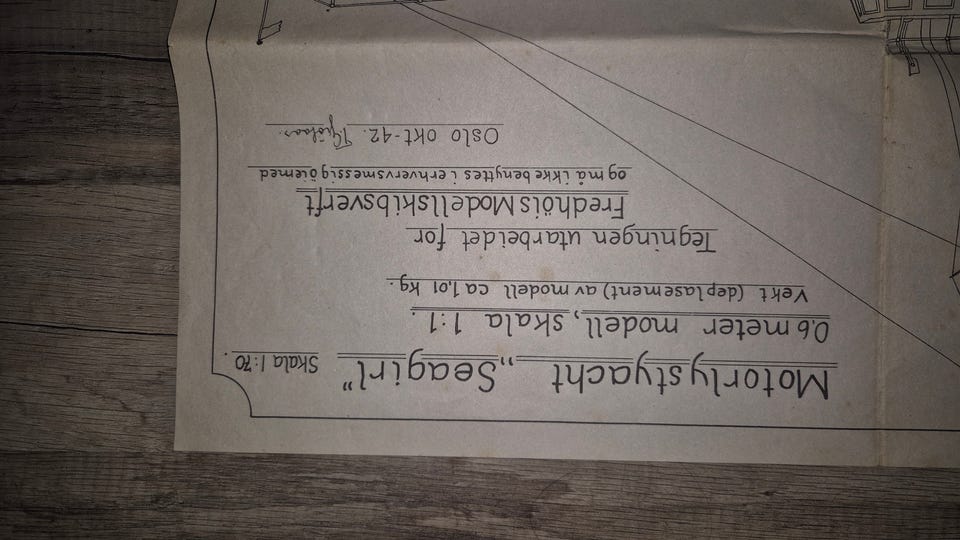 Motorlystyacht „Seagirl” Skala 1:70.
0,6 meter modell, skala 1:1.
Vekt (deplasement) av modell ca 1,01 kg.
Tegningen utarbeidet for
Fredhöis Modellskibsverft
og må ikke benyttes i erhvervsmessig öiemed
Oslo okt-42.